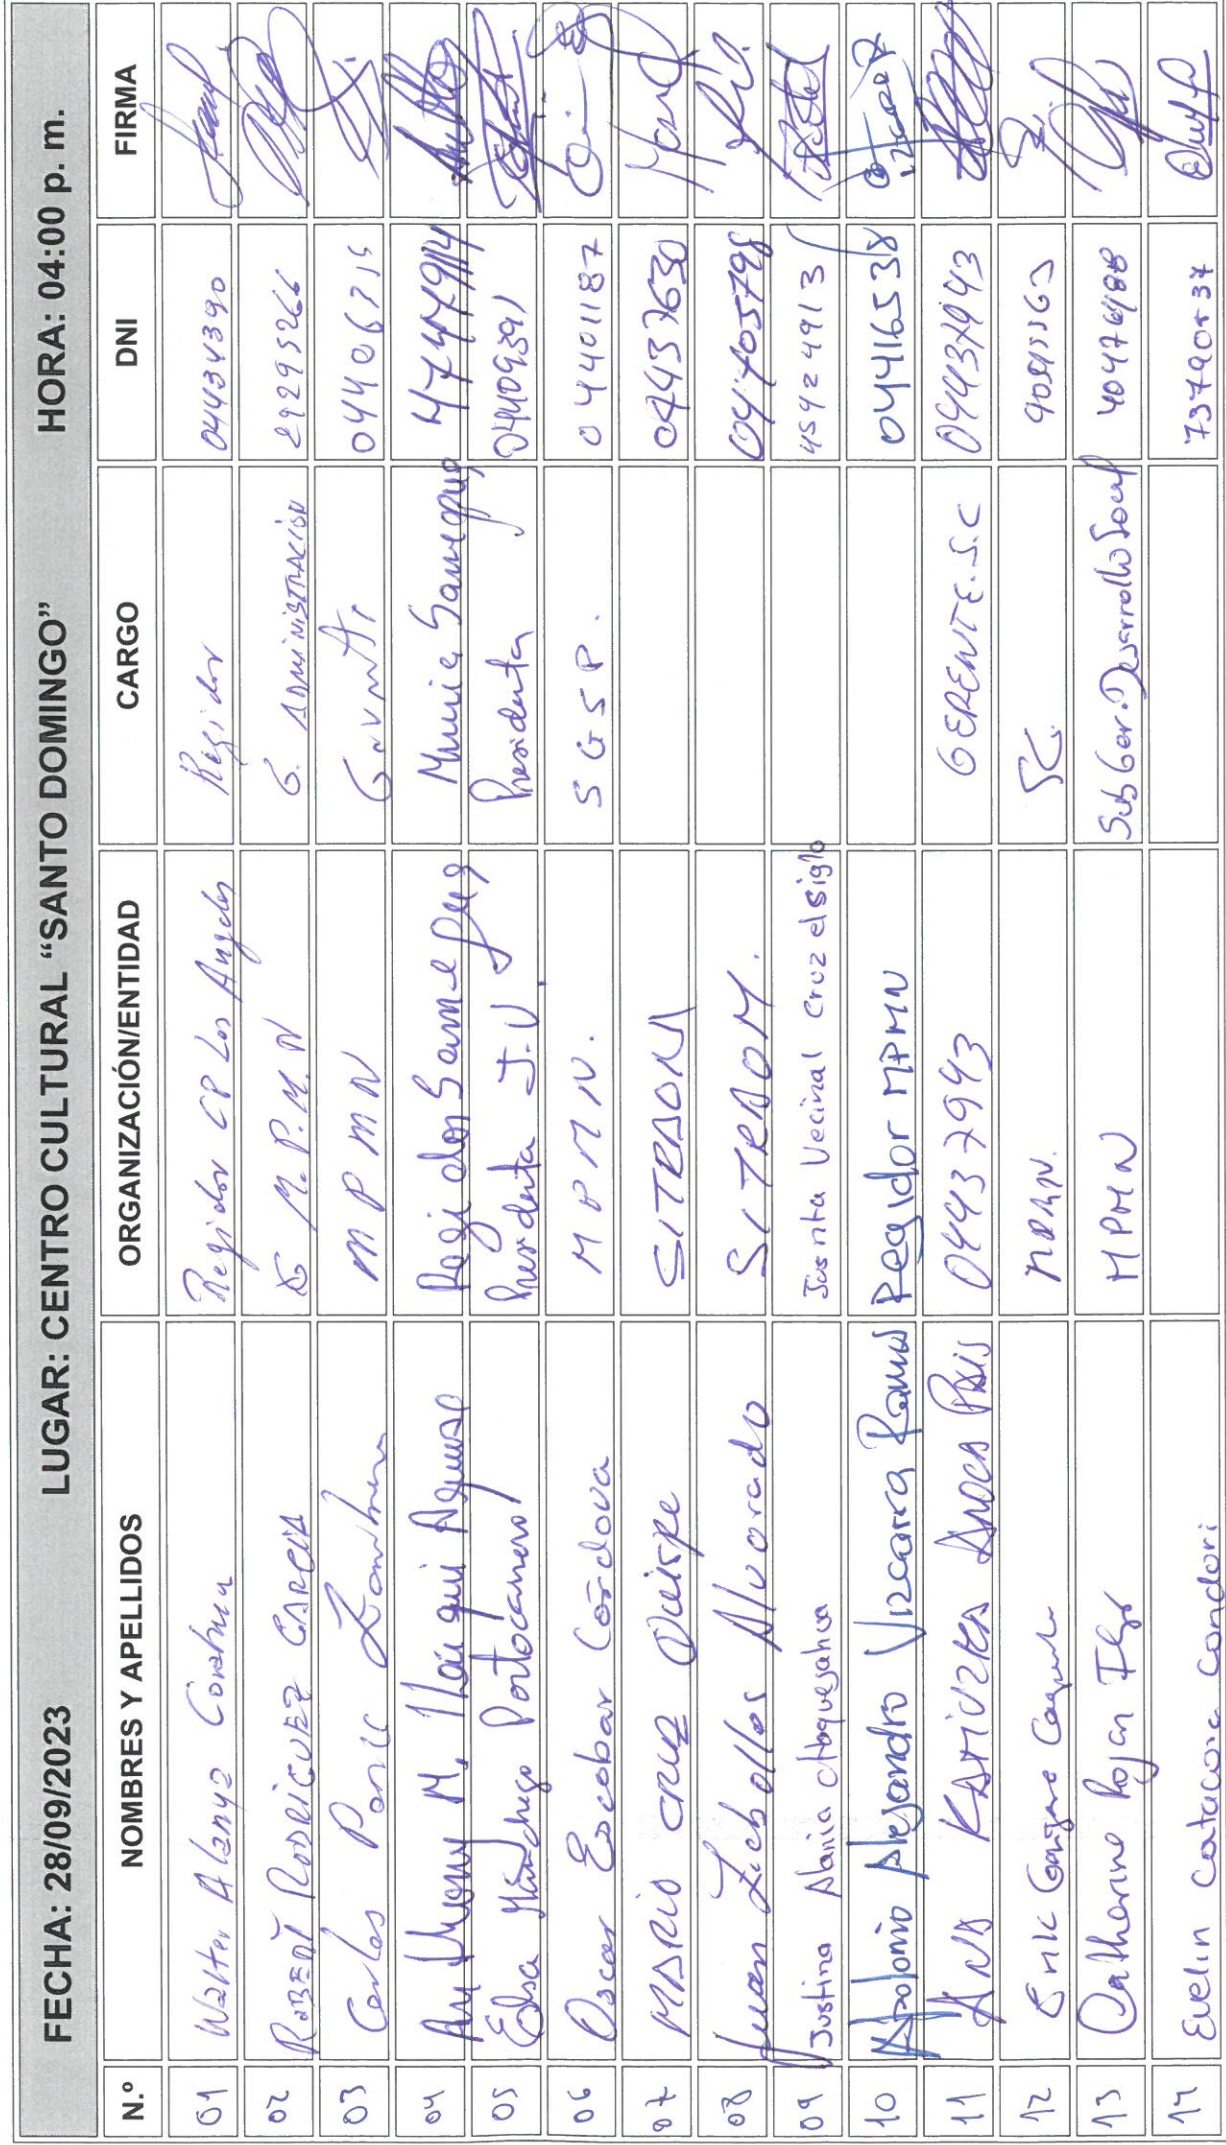 FECHA: 28/09/2023 LUGAR: CENTRO CULTURAL “SANTO DOMINGO” HORA: 04:00 p. m.
N.º NOMBRES Y APELLIDOS ORGANIZACIÓN/ENTIDAD CARGO DNI FIRMA
01 Walter Alanya Regidor CP Los Angeles Regidor 04434390
02 ROBERT RODRIGUEZ GARCIA M.P.M.N G. ADMINISTRACIÓN 29295266
03 Carlos Ponce Zambrano MPMN 04406715
04 Any M. Regidor Samegua 47479114
05 Elsa Manchego Portocarrero Presidenta J.V. Presidenta 04409391
06 Oscar Escobar Córdova MPMN. SGSP. 04401187
07 MARIO CRUZ QUISPE SITRAOM 04437630
08 Juan Zeballos Alvarado SITRAOM. 04705798
09 Justina Alania Choquegahua Junta Vecinal Cruz el siglo 45924913
10 Apolonio Alejandro Vizcarra Ramos Regidor MPMN 04416538
11 ANA KATIUZKA ANOCA PAIS 04437943 GERENTE.S.C 04437943
12 Erik SC.
13 Catherine Rojan MPMN Sub Ger. Desarrollo Social 40476988
14 Evelin Catacora Condori 73790537